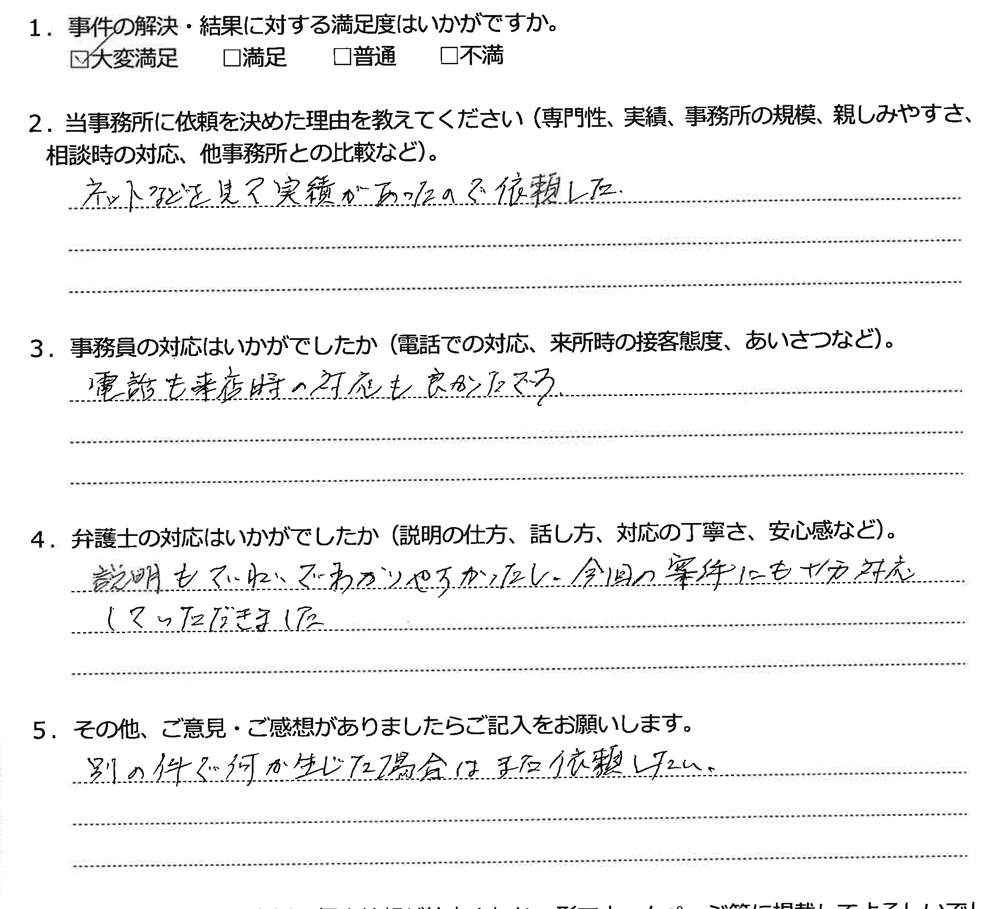 1. 事件の解決・結果に対する満足度はいかがですか。
☑大変満足 □満足 □普通 □不満
2. 当事務所に依頼を決めた理由を教えてください（専門性、実績、事務所の規模、親しみやすさ、
相談時の対応、他事務所との比較など）。
ネットなどを見て実績があったので依頼した.
3. 事務員の対応はいかがでしたか（電話での対応、来所時の接客態度、あいさつなど）。
電話も来店時の対応も良かったです.
4. 弁護士の対応はいかがでしたか（説明の仕方、話し方、対応の丁寧さ、安心感など）。
説明もていねいでわかりやすかったし、今回の案件にも十分対応
していただきました
5. その他、ご意見・ご感想がありましたらご記入をお願いします。
別の件で何か生じた場合はまた依頼したい。